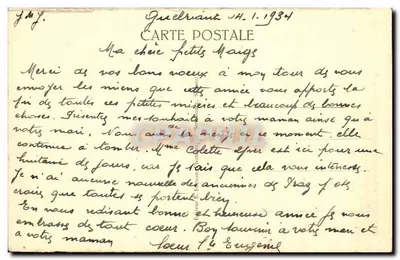 J.M.J. 14.1.1934
CARTE POSTALE
Ma chère petite
Merci de vos bons voeux à mon tour de vous
envoyer les miens que cette année vous apporte la
fin de toutes ces petites misères et beaucoup de bonnes
choses. Présentez mes souhaits à votre maman ainsi qu'à
votre mari. Nous de la neige en ce moment, elle
continue à tomber. Mme Colette est ici pour une
huitaine de jours, car je sais que cela vous intéresse.
Je n'ai aucune nouvelle des anciennes de et
crois que toutes se portent bien.
En vous redisant bonne et heureuse année je vous
embrasse de tout coeur. Bon souvenir à votre mari et
à votre maman Soeur Ste Eugénie